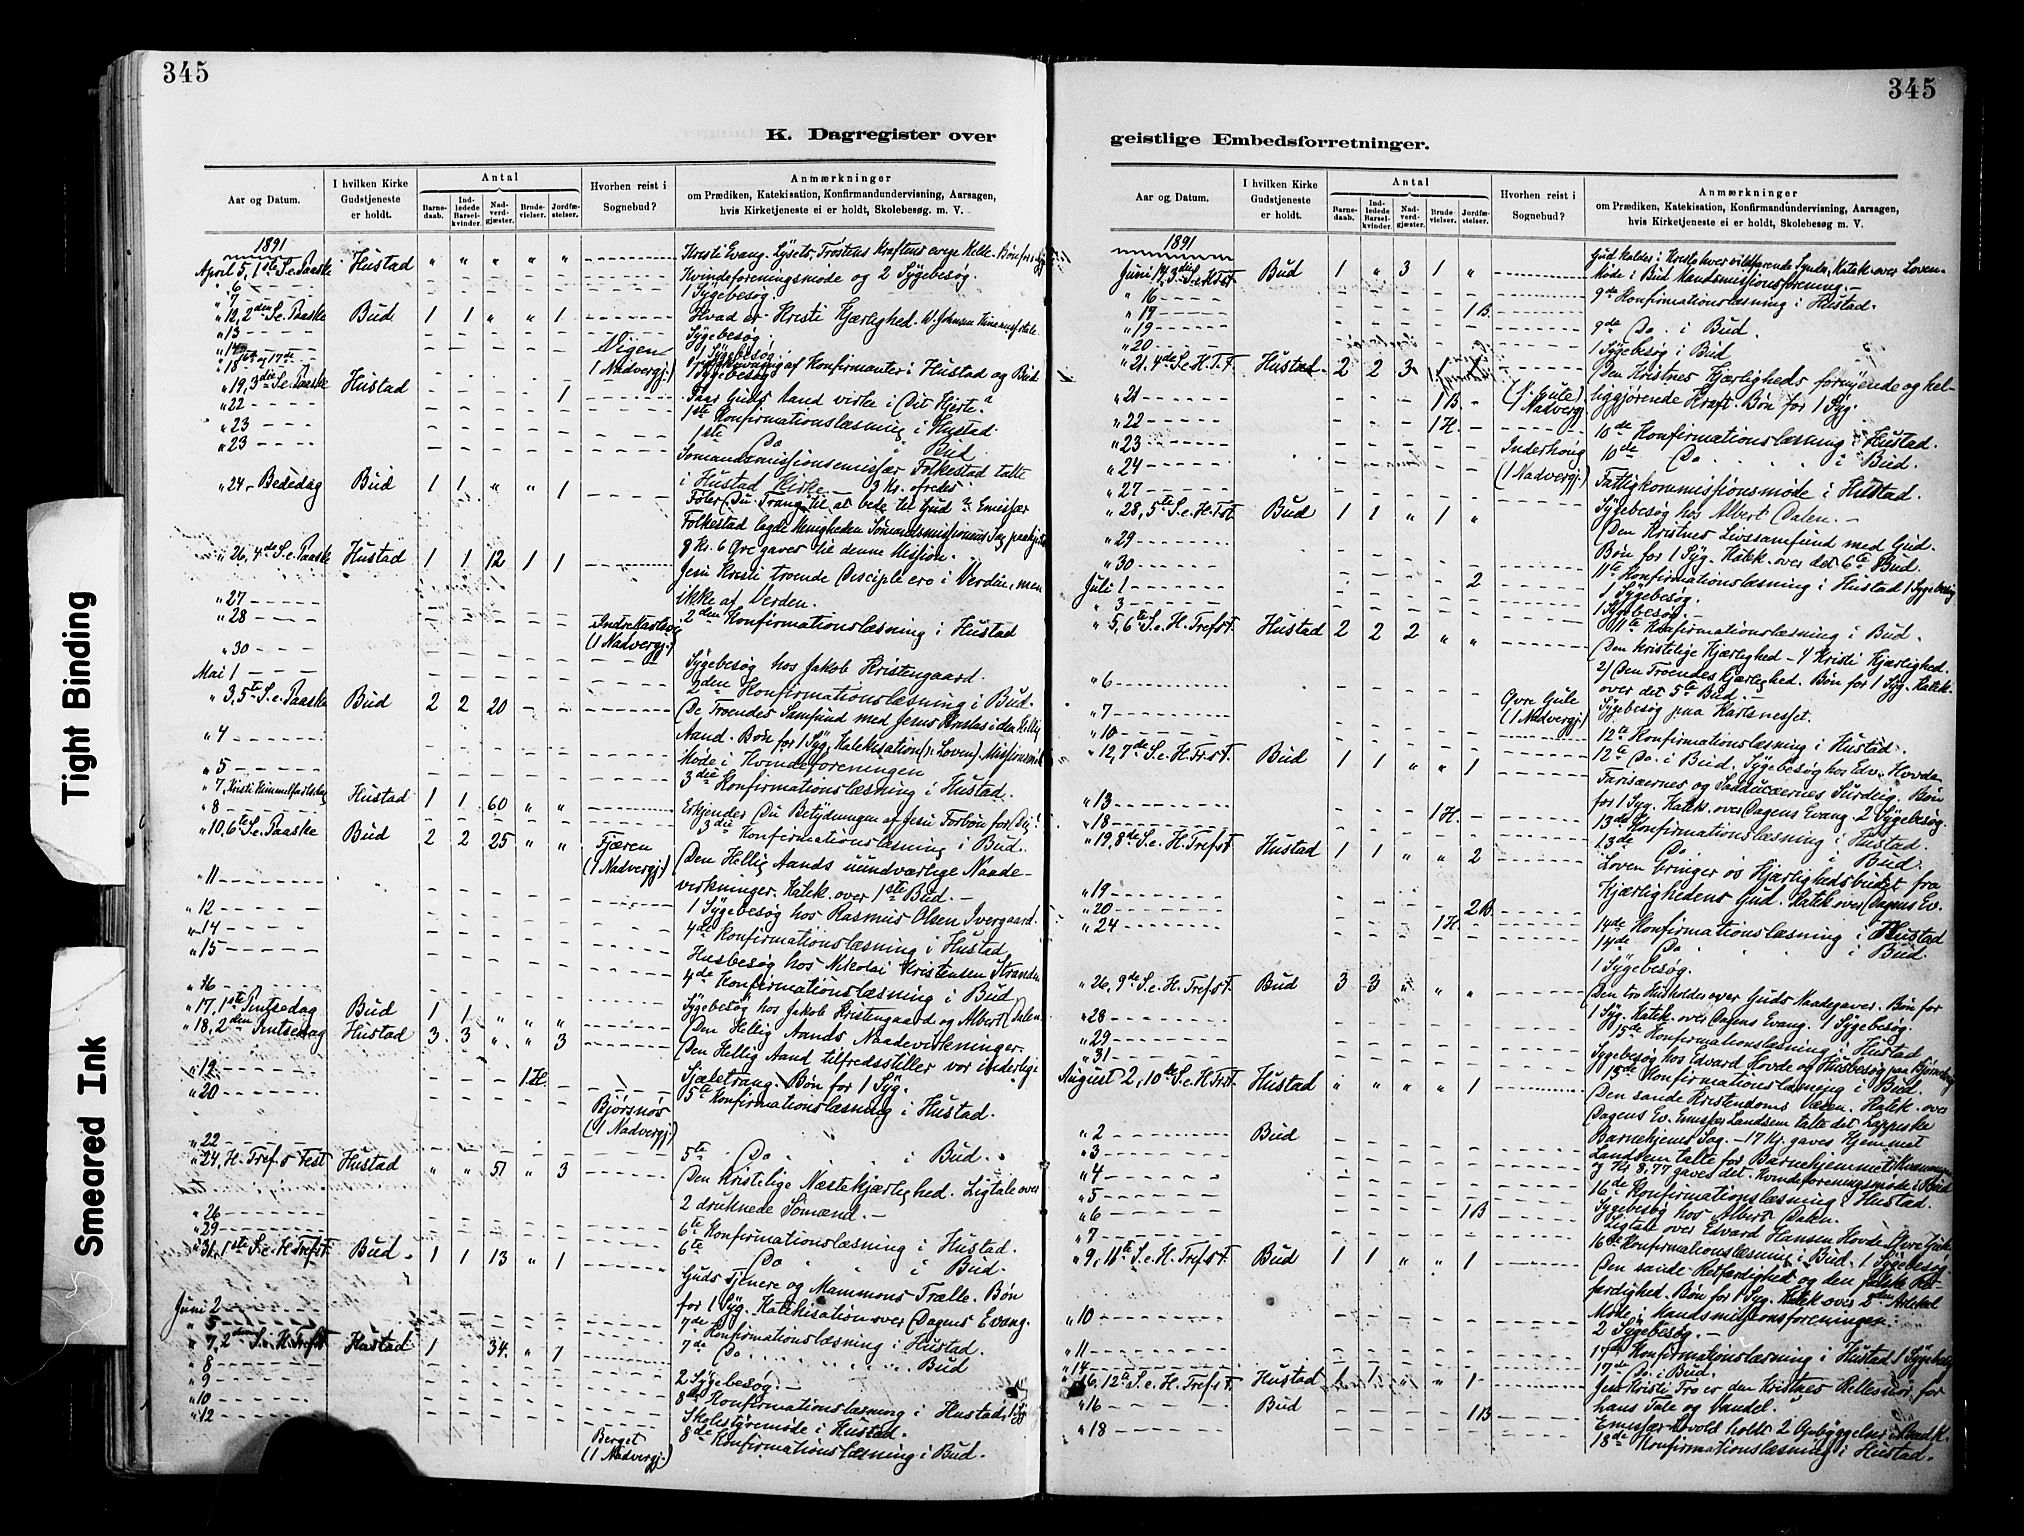 345
K. Dagregister over
Aar og Datum.
I hvilken Kirke Gudstjeneste er holdt.
Antal
Barne-daab.
Ind-ledede Barsel-kvinder.
Nad-verd-gjæster.
Brude-vielser.
Jordfæ-stelser.
Hvorhen reist i Sognebud?
Anmærkninger
om Prædiken, Katekisation, Konfirmandundervisning, Aarsagen,
hvis Kirketjeneste ei er holdt, Skolebesøg. m. V.
1891
April 5, 1ste S. e. Paaske Hustad " " " " "
" 6 Kvindeforeningsmøde og 2 Sygebesøg.
" 7 1 Sygebesøg.
" 12, 2den S. e. Paaske Bud 1 1 " " 1 Hvad er Kristi Kjærlighed.
" 13 Sygebesøg
" 19, 3die S. e. Paaske Hustad 1 Faar Guds Aand virke i Dit Hjerte?
" 22 1ste Konfirmationslæsning i Hustad.
" 23 1ste Do i Bud
" 23 Sømandsmissionsemissær Folkestad talte
i Hustad Kirke
" 24 Bededag Bud 1 1 " " 1 Føler Du Trang til at bede til Gud? Emissær
Folkestad
9 Kr. 6 Øre gaves til denne Mission.
" 26, 4de S. e. Paaske Hustad 1 1 12 1 1 Jesu Kristi troende Disciple ere i Verden, men
ikke af Verden.
" 27 2den Konfirmationslæsning i Hustad
" 28
(1 Nadvergj.)
" 30 Sygebesøg hos Jakob Kristengaard.
Mai 1 2den Konfirmationslæsning i Bud.
" 3, 5te S. e. Paaske Bud 2 2 20 De Troendes Samfund med Jesus
Aand. Bøn for 1 Syg. Katekisation
" 4 Møde i Kvindeforeningen
" 5 3die Konfirmationslæsning i Hustad.
" 7, Kristi Himmelfartsdag Hustad 1 1 60 " " Erkjendes Du Betydningen af Jesu Forbøn for Dig?
" 8 3die Konfirmationslæsning i Bud.
" 10, 6te S. e. Paaske Bud 2 2 25 " " Fjæren (1 Nadvergj.) Den Hellig Aands uundværlige Naade-
virkninger. Katek. over 1ste Bud.
" 11 1 Sygebesøg hos Rasmus Olsen Ivergaard.
" 12 4de Konfirmationslæsning i Hustad
" 14 Husbesøg hos Nikolai Kristensen Stranden
" 15 4de Konfirmationslæsning i Bud
" 16 Sygebesøg hos Jakob Kristengaard og Albert Dalen.
" 17, 1ste Pintsedag Bud 1 1 " " " Den Hellig Aands Naadevirkninger.
" 18, 2den Pintsedag Hustad 3 3 " " 3 Den Hellig Aand tilfredsstiller vor inderlige
Sjæletrang. Bøn for 1 Syg.
" 19 1 H. 5te Konfirmationslæsning i Hustad.
" 20 Bjørsnøs (1 Nadvergj.)
" 22 5te Do i Bud.
" 24, H. Tref.s Fest Hustad " " 51 " 3 Den Kristelige Næstekjærlighed. Ligtale over
2 druknede Sømænd.
" 26 6te Konfirmationslæsning i Hustad.
" 29 6te Do i Bud.
" 31, 1ste S. e. H. Trefst. Bud 1 1 13 " 1 Guds Tjenere og Mammons Trælle. Bøn
for 1 Syg. Katekisation over Dagens Evang.
Juni 2 7de Konfirmationslæsning i Hustad.
" 5 7de Do Bud
" 7, 2den S. e. H. Trefst. Hustad 1 34 " 1
" 8 2 Sygebesøg.
" 9 8de Konfirmationslæsning i Hustad,
" 10 Skolestyremøde i Hustad.
" 12 Berget (1 Nadvergj.) 8de Konfirmationslæsning i Bud.
345
geistlige Embedsforretninger.
Aar og Datum.
I hvilken Kirke Gudstjeneste er holdt.
Antal
Barne-daab.
Ind-ledede Barsel-kvinder.
Nad-verd-gjæster.
Brude-vielser.
Jordfæ-stelser.
Hvorhen reist i Sognebud?
Anmærkninger
om Prædiken, Katekisation, Konfirmandundervisning, Aarsagen,
hvis Kirketjeneste ei er holdt, Skolebesøg m. V.
1891
Juni 14, 3die S. e. H. Tfst. Bud 1 " 3 1 "
Møde i Bud Mandsmissionsforening.
" 16 9de Konfirmationslæsning i Hustad.
" 17 1 B.
" 19 9de Do. i Bud.
" 20 1 Sygebesøg i Bud
" 21, 4de S. e. H. T. F. Hustad 2 2 3 Den Kristnes Kjærligheds fornyende og hel-
liggjørende Kraft. Bøn for 1 Syg.
" 21 1 B.
" 22 1 H. 10de Konfirmationslæsning i Hustad.
" 23 10de Do i Bud.
" 24 Inderhaug (1 Nadvergj.) Fattigkommissionsmøde i Hustad.
" 27 Sygebesøg hos Albert Dalen.
" 28, 5te S. e. H. Tfst. Bud 1 1 " 1 " Den Kristnes Livssamfund med Gud.
Bøn for 1 Syg. Katek. over det 6te Bud.
" 29 11te Konfirmationslæsning i Hustad 1 Sygebesøg
" 30 1 Sygebesøg.
Juli 1 2
" 3 11te Konfirmationslæsning i Bud.
" 5, 6te S. e. H. Trefst. Hustad 2 2 2 " " Den kristelige Kjærlighed 1) Kristi Kjærlighed.
2) Den Troendes Kjærlighed. Bøn for 1 Syg. Katek.
over det 5te Bud.
" 6 Sygebesøg paa Karlsneset.
" 7 Øvre Gule (1 Nadvergj.) 12te Konfirmationslæsning i Hustad.
" 10 12te Do. i Bud. Sygebesøg hos Edv. Hovde.
" 12, 7de S. e. H. Trfst. Bud 1 1 " " 1 Farisæernes og Sadducæernes Surdeig. Bøn
for 1 Syg. Katek. over Dagens Evang. 2 Sygebesøg.
" 13 1 H. 13de Konfirmationslæsning i Hustad.
" 18 13de Do i Bud.
" 19, 8de S. e. H. Trefst. Hustad 1 1 " " 2 Loven bringer os Kjærlighedsbudet fra
Kjærlighedens Gud. Katek over Dagens Ev.
" 19
" 20 2 B. 14de Konfirmationslæsning i Hustad
" 24 1 H. 14de Do i Bud
1 Sygebesøg.
" 26, 9de S. e. H. Trefst. Bud 3 3 " " " Den tro Husholder over Guds Naadegaver. Bøn for
1 Syg. Katek. over Dagens Evang. 1 Sygebesøg.
" 28 15de Konfirmationslæsning i Hustad
" 29 Sygebesøg hos Edvard Hovde og Husbesøg paa
" 31 15de Konfirmationslæsning i Bud.
August 2, 10de S. e. H. Trfst. Hustad " " " " 1 Den sande Kristendoms Væsen. Katek. over
Dagens Ev. Emissær Landsem talte det Lappiske
Barnehjems Sag. 17 Kr. gaves Hjemmet
" 2 Bud Landsem talte for Barnehjemmet
og Kr 8.77 gaves det.
" 3 Kvindeforeningsmøde i Bud
" 4 16de Konfirmationslæsning i Hustad.
" 5 Sygebesøg hos Albert Dalen.
" 6 1 B Ligtale over Edvard Hansen Hovde
" 7 16de Konfirmationslæsning i Bud. 1 Sygebesøg.
" 9, 11te S. e. H. Trefst. Bud 1 1 " " 1 Den sande Retfærdighed og den falske Ret-
færdighed. Bøn for 1 Syg. Katek over 2den Artikel
" 10 Møde i Mandsmissionsforeningen.
2 Sygebesøg.
" 11 17de Konfirmationslæsning i Hustad 1 Sygebesøg
" 14 17de Do. i Bud.
" 16, 12te S. e. H. Trefst. Hustad 1 1 " " 1 Jesu Kristi Tro er den Kristnes Rettesnor, for
hans Tale og Vandel.
" 16 Bud 1 B Emissær Lovold holdt 2 Opbyggelser i Bud K.
" 18 18de Konfirmationslæsning i Hustad.
Tight Binding
Smeared Ink